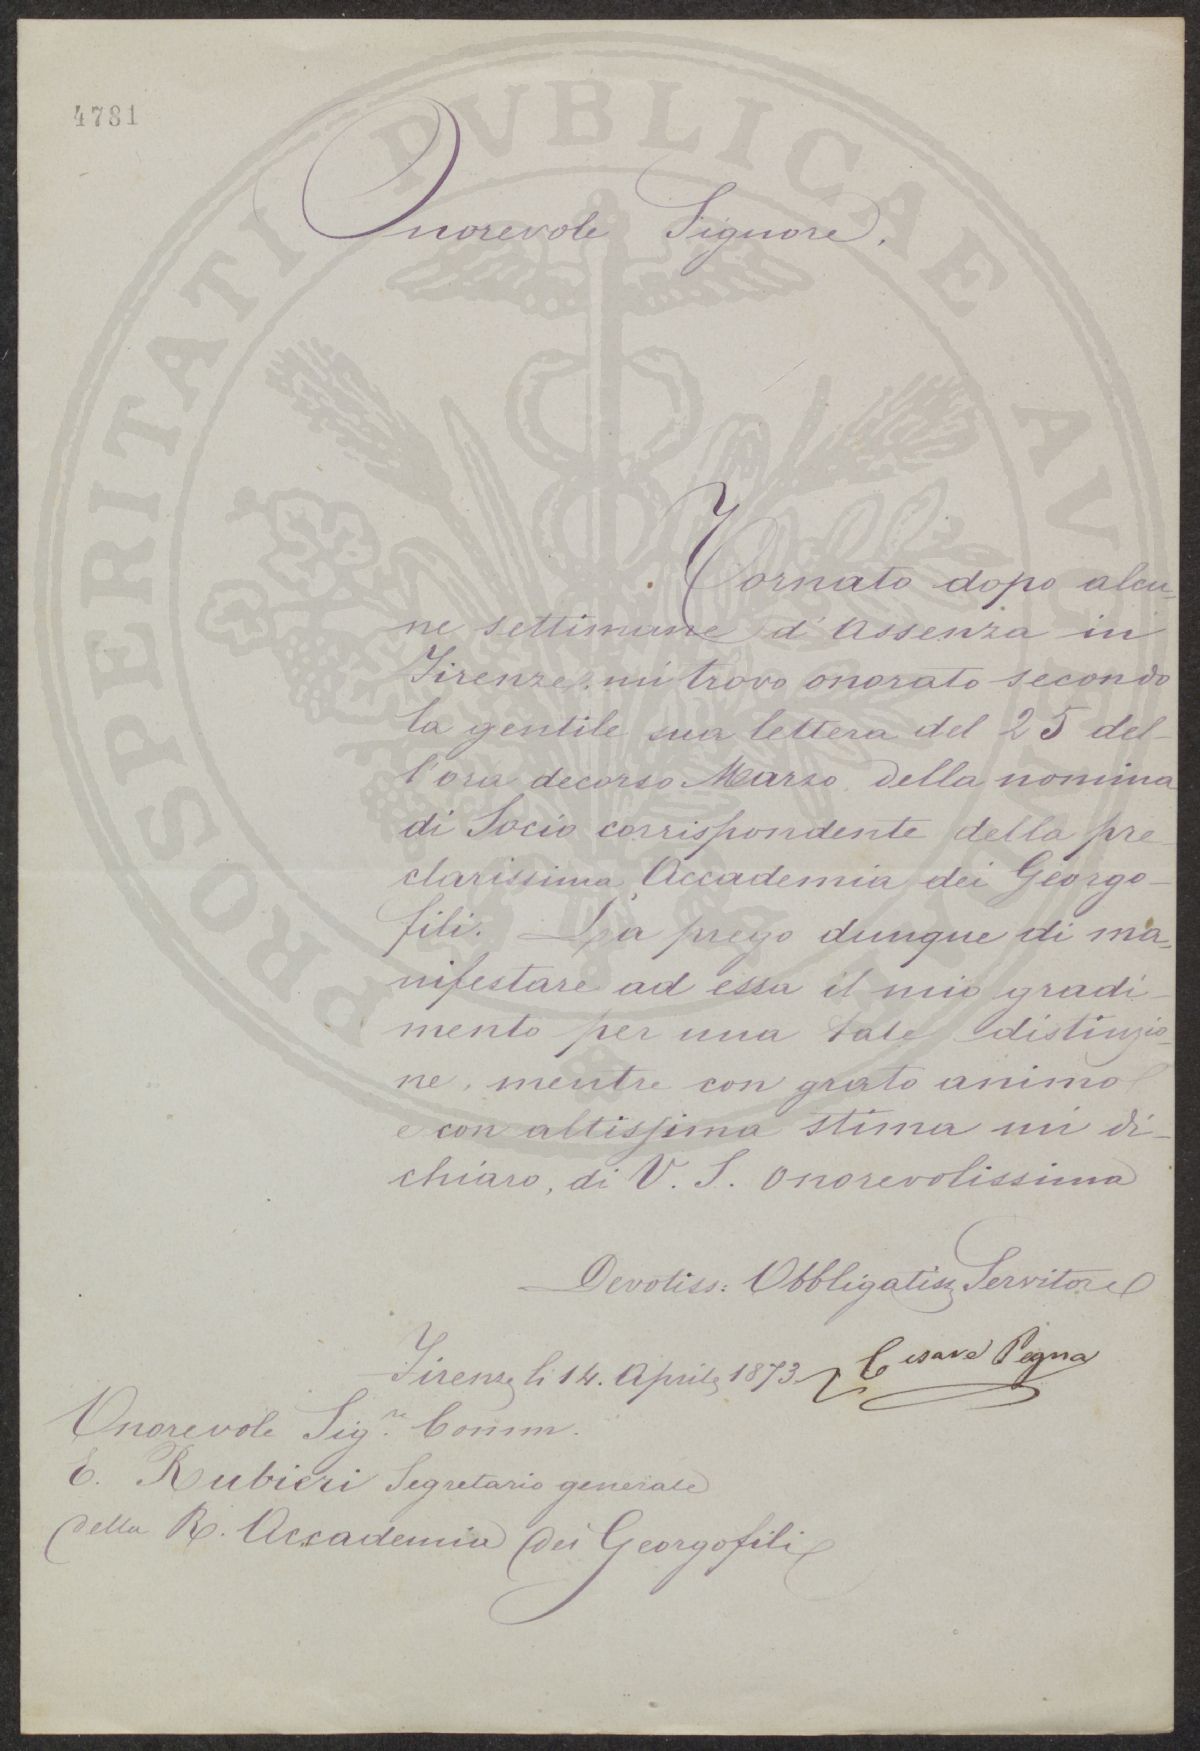 4781
PROSPERITATI PVBLICAE AVGENDAE
Onorevole Signore,
Tornato dopo alcu-
ne settimane d'assenza in
Firenze, mi trovo onorato secondo
la gentile sua lettera del 25 del-
l'ora decorso Marzo della nomina
di Socio corrispondente della pre-
clarissima Accademia dei Georgo-
fili. La prego dunque di ma-
nifestare ad essa il mio gradi-
mento per una tale distinzio-
ne, mentre con grato animo
e con altissima stima mi di-
chiaro, di V. S. Onorevolissima
Devotiss: Obbligatiss Servitore
Cesare Pegna
Firenze li 14. Aprile 1873.
Onorevole Sig.re Comm.
E. Rubieri Segretario generale
della R. Accademia dei Georgofili